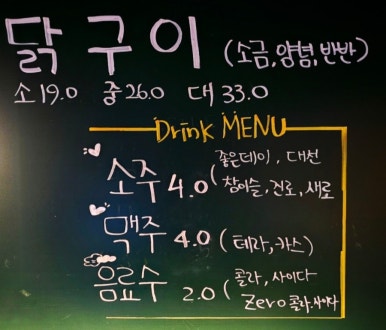 닭구이 (소금,양념,반반)
소 19.0 중 26.0 대 33.0
Drink MENU
소주 4.0 (좋은데이, 대선
참이슬, 진로, 새로
맥주 4.0 (테라,카스)
음료수 2.0 (콜라, 사이다
Zero 콜라,사이다